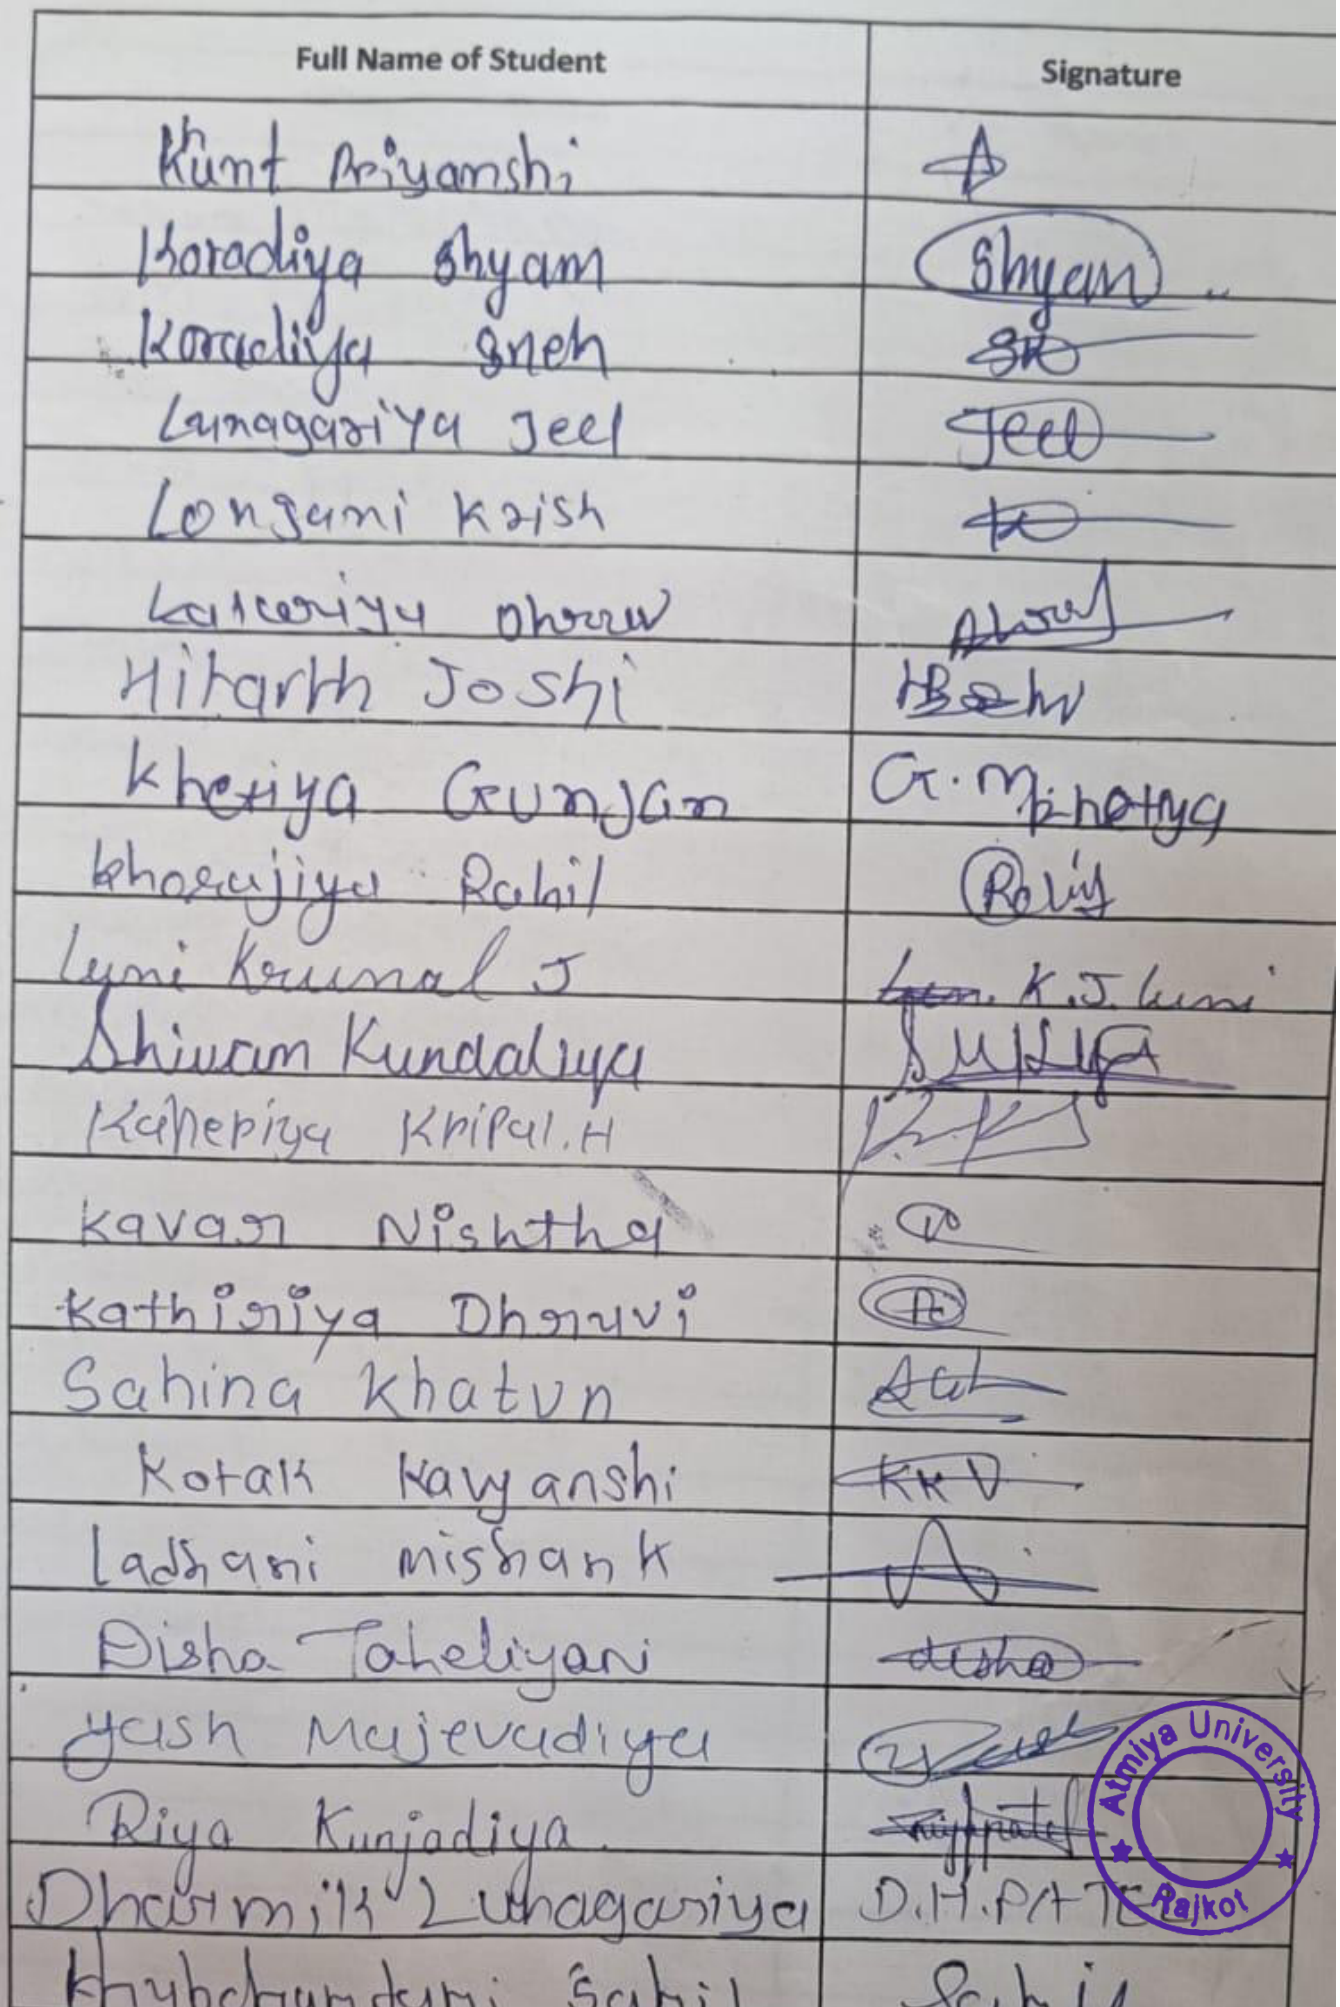 Full Name of Student Signature
Khunt Priyanshi
Koradiya Shyam Shyam
Koradiya Sneh
Lunagariya Jeel Jeel
Longani Krish
Dhruv
Hitarth Joshi
Kheriya Gunjan G.M.
Rahil
Luni Krunal J K.J. Luni
Shivam Kundaliya
Kaneriya Kripal.H
Kavar Nishtha
Kathiriya Dhruvi
Sahina Khatun
Kotak Kavyanshi
Ladhani Mishank
Disha Taheliyani disha
Yash Majevadiya
Riya Kunjadiya
Dharmik Lunagariya D.H.PATEL
Khubchandani Sahil Sahil
Atmiya University
Rajkot